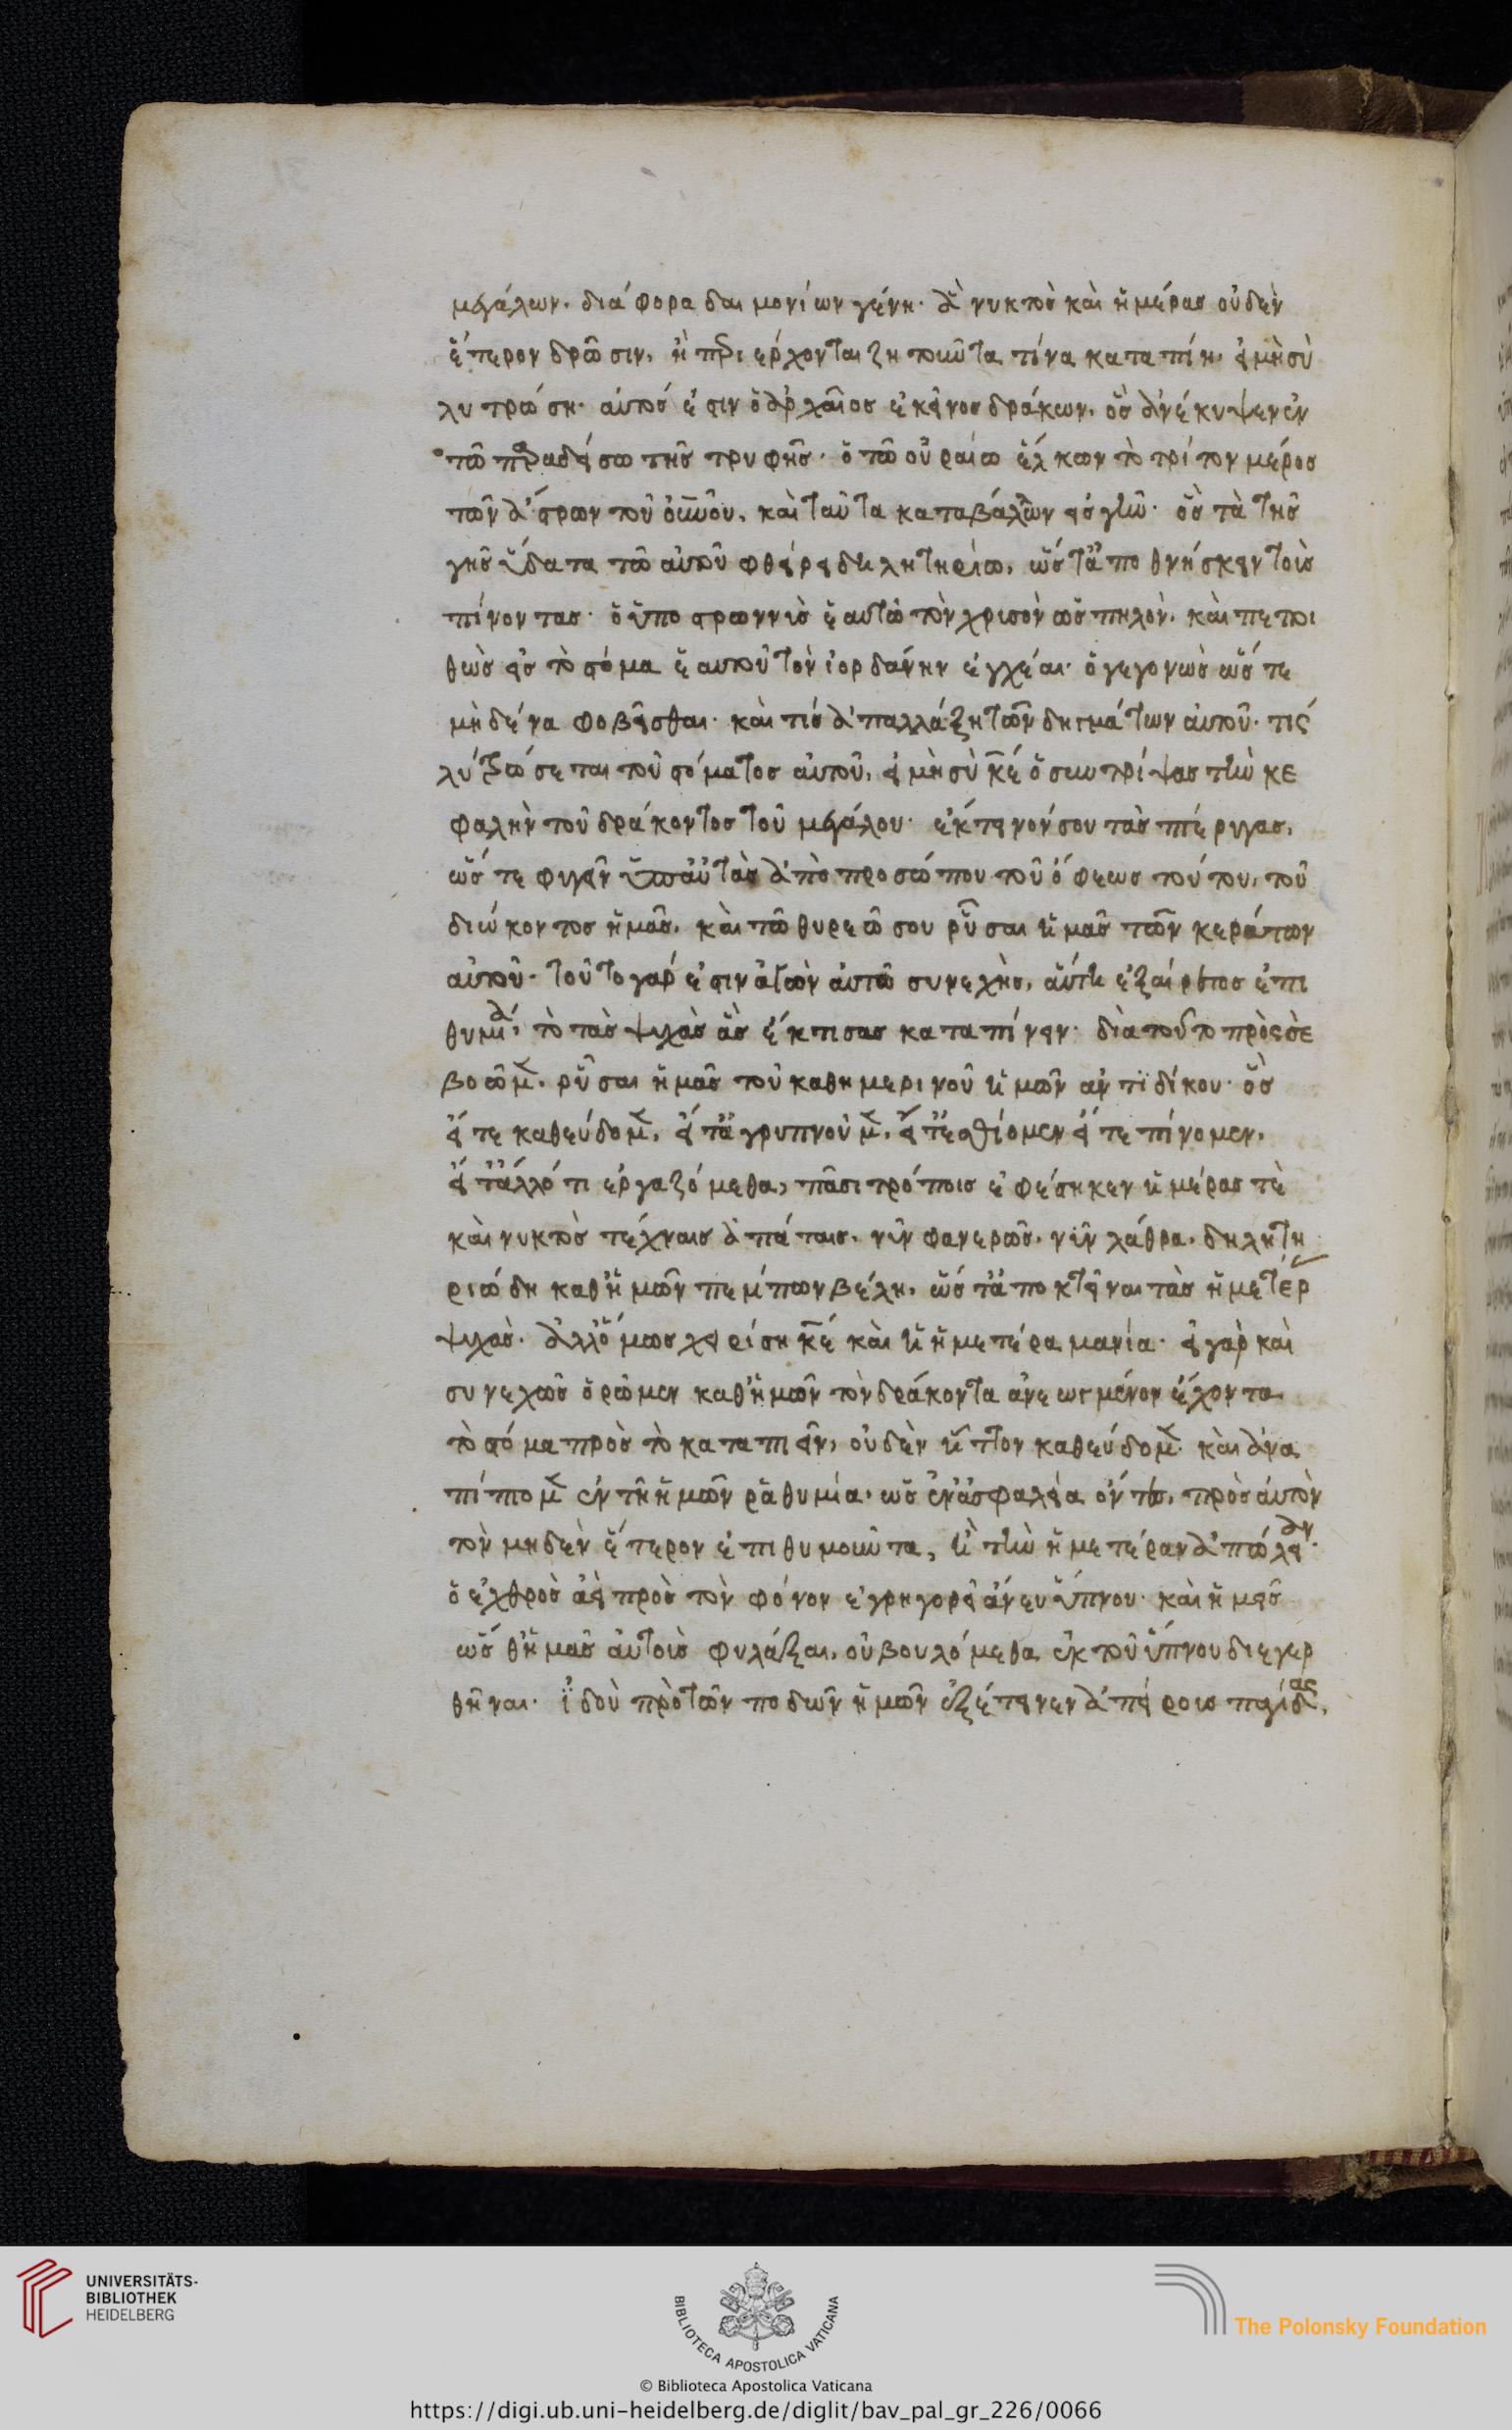 μεγάλων. διάφορα δαιμονίων γένη. ἃ νυκτὸς καὶ ἡμέρας οὐδὲν
ἕτερον δρῶσιν, ἢ περιέρχονται ζητοῦντα τίνα καταπίῃ. εἰ μὴ σὺ
λυτρώσῃ. αὐτός ἐστιν ὁ ἀρχαῖος ἐκεῖνος δράκων. ὃς ἀνέκυψεν ἐν
τῶ παραδείσω τῆς τρυφῆς. ὁ τῶ οὐραίω ἕλκων τὸ τρίτον μέρος
τῶν ἄστρων τοῦ οὐνοῦ, καὶ ταῦτα καταβάλλων εἰς γῆν. ὃς τὰ τῆς
γῆς ὕδατα τῶ αὐτοῦ φθείρει δηλητηρίω, ὥστ' ἀποθνήσκειν τοὺς
πίνοντας. ὁ ὑποστρωννὺς ἑαυτῶ τὸν χρυσὸν ὡς πηλὸν. καὶ πεποι
θὼς εἰς τὸ στόμα ἑαυτοῦ τὸν ἰορδάνην ἐγχέαι. ὁ γεγονὼς ὥστε
μηδένα φοβεῖσθαι. καὶ τίς ἀπαλλάξῃ τῶν δηγμάτων αὐτοῦ. τίς
λυτρώσεται τοῦ στόματος αὐτοῦ, εἰ μὴ σὺ κέ ὁ συντρίψας τὴν κε
φαλὴν τοῦ δράκοντος τοῦ μεγάλου. ἔκτεινόν σου τὰς πτέρυγας,
ὥστε φυγεῖν ὑπ' αὐτὰς ἀπὸ προσώπου τοῦ ὄφεως τούτου, τοῦ
διώκοντος ἡμᾶς. καὶ τῶ θυρεῶ σου ῥῦσαι ἡμᾶς τῶν κεράτων
αὐτοῦ. τοῦτο γάρ ἐστιν αἰτῶν αὐτῶ συνεχὴς, αὕτη ἐξαίρετος ἐπι
θυμία, τὸ τὰς ψυχὰς ἃς ἔκτισας καταπίνειν. διὰ τοῦτο πρὸς σὲ
βοῶμ. ῥῦσαι ἡμᾶς τοῦ καθημερινοῦ ἡμῶν ἀντιδίκου. ὃς
εἴτε καθεύδομ. εἴτ' ἀγρυπνοῦμ. εἴτ' ἐσθίομεν εἴτε πίνομεν.
εἴτ' ἄλλό τι ἐργαζόμεθα, πᾶσι τρόποις ἐφέστηκεν ἡμέρας τὲ
καὶ νυκτὸς τέχναις ἀπάταις. νῦν φανερῶς. νῦν λάθρα. δηλητη
ριώδη καθ' ἡμῶν πέμπων βέλη. ὥστ' ἀποκτεῖναι τὰς ἡμετέρ
ψυχάς. ἀλλ' ὅμως χειρίστη κέ καὶ ἡ ἡμετέρα μανία. εἰ γὰρ καὶ
συνεχῶς ὁρῶμεν καθ' ἡμῶν τὸν δράκοντα ἀνεωγμένον ἔχοντα
τὸ στόμα πρὸς τὸ καταπιεῖν, οὐδὲν ἧττον καθεύδομ. καὶ ἀνα
πίπτομ ἐν τῇ ἡμῶν ῥαθυμία. ὡς ἐν ἀσφαλεία ὄντες, πρὸς αὐτὸν
τὸν μηδὲν ἕτερον ἐπιθυμοῦντα, ἢ τὴν ἡμετέραν ἀπώλειαν.
ὁ ἐχθρὸς ἀεὶ πρὸς τὸν φόνον ἐγρηγορεῖ ἄνευ ὕπνου. καὶ ἡμεῖς
ὥσθ' ἡμᾶς αὐτοὺς φυλάξαι, οὐ βουλόμεθα ἐκ τοῦ ὕπνου διεγερ
θῆναι. ἰδοὺ πρὸ τῶν ποδῶν ἡμῶν ἐξέτεινεν ἀπείρους παγίδας,
UNIVERSITÄTS-
BIBLIOTHEK
HEIDELBERG
BIBLIOTECA APOSTOLICA VATICANA
The Polonsky Foundation
© Biblioteca Apostolica Vaticana
https://digi.ub.uni-heidelberg.de/diglit/bav_pal_gr_226/0066